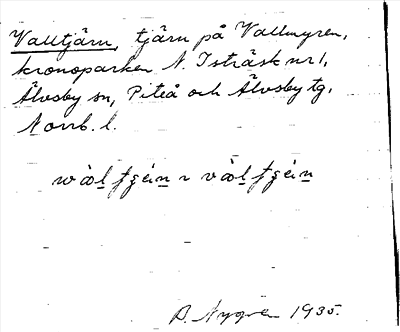 Valltjärn, tjärn på Vallmyren,
kronoparken N. Isträsk nr 1,
Älvsby sn, Piteå och Älvsby tg,
Norrb. l.
B. Nygren 1935.